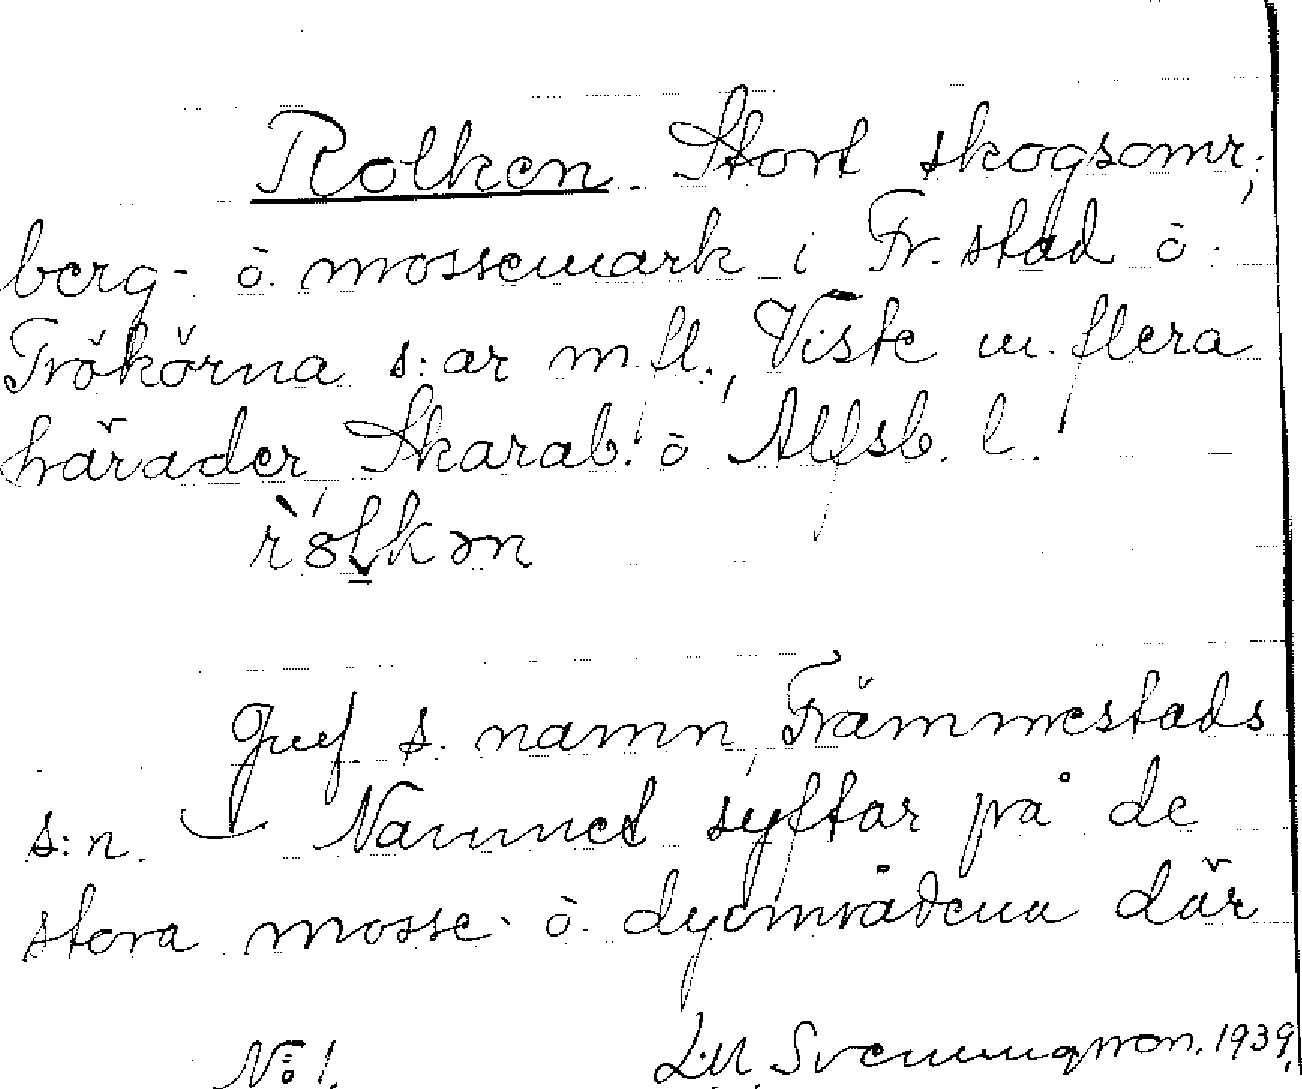 Rolken. Stort skogsomr.,
berg- ò. mossemark i Fr.stad ò.
Trökörna s:ar m.fl., Viste m. flera
härader Skarab. ò Älfsb. l.
Jmf s. namn, Främmestads
s:n. Namnet syftar på de
stora mosse- ò. dyområdena där
No 1. L.M. Svenungsson. 1939.